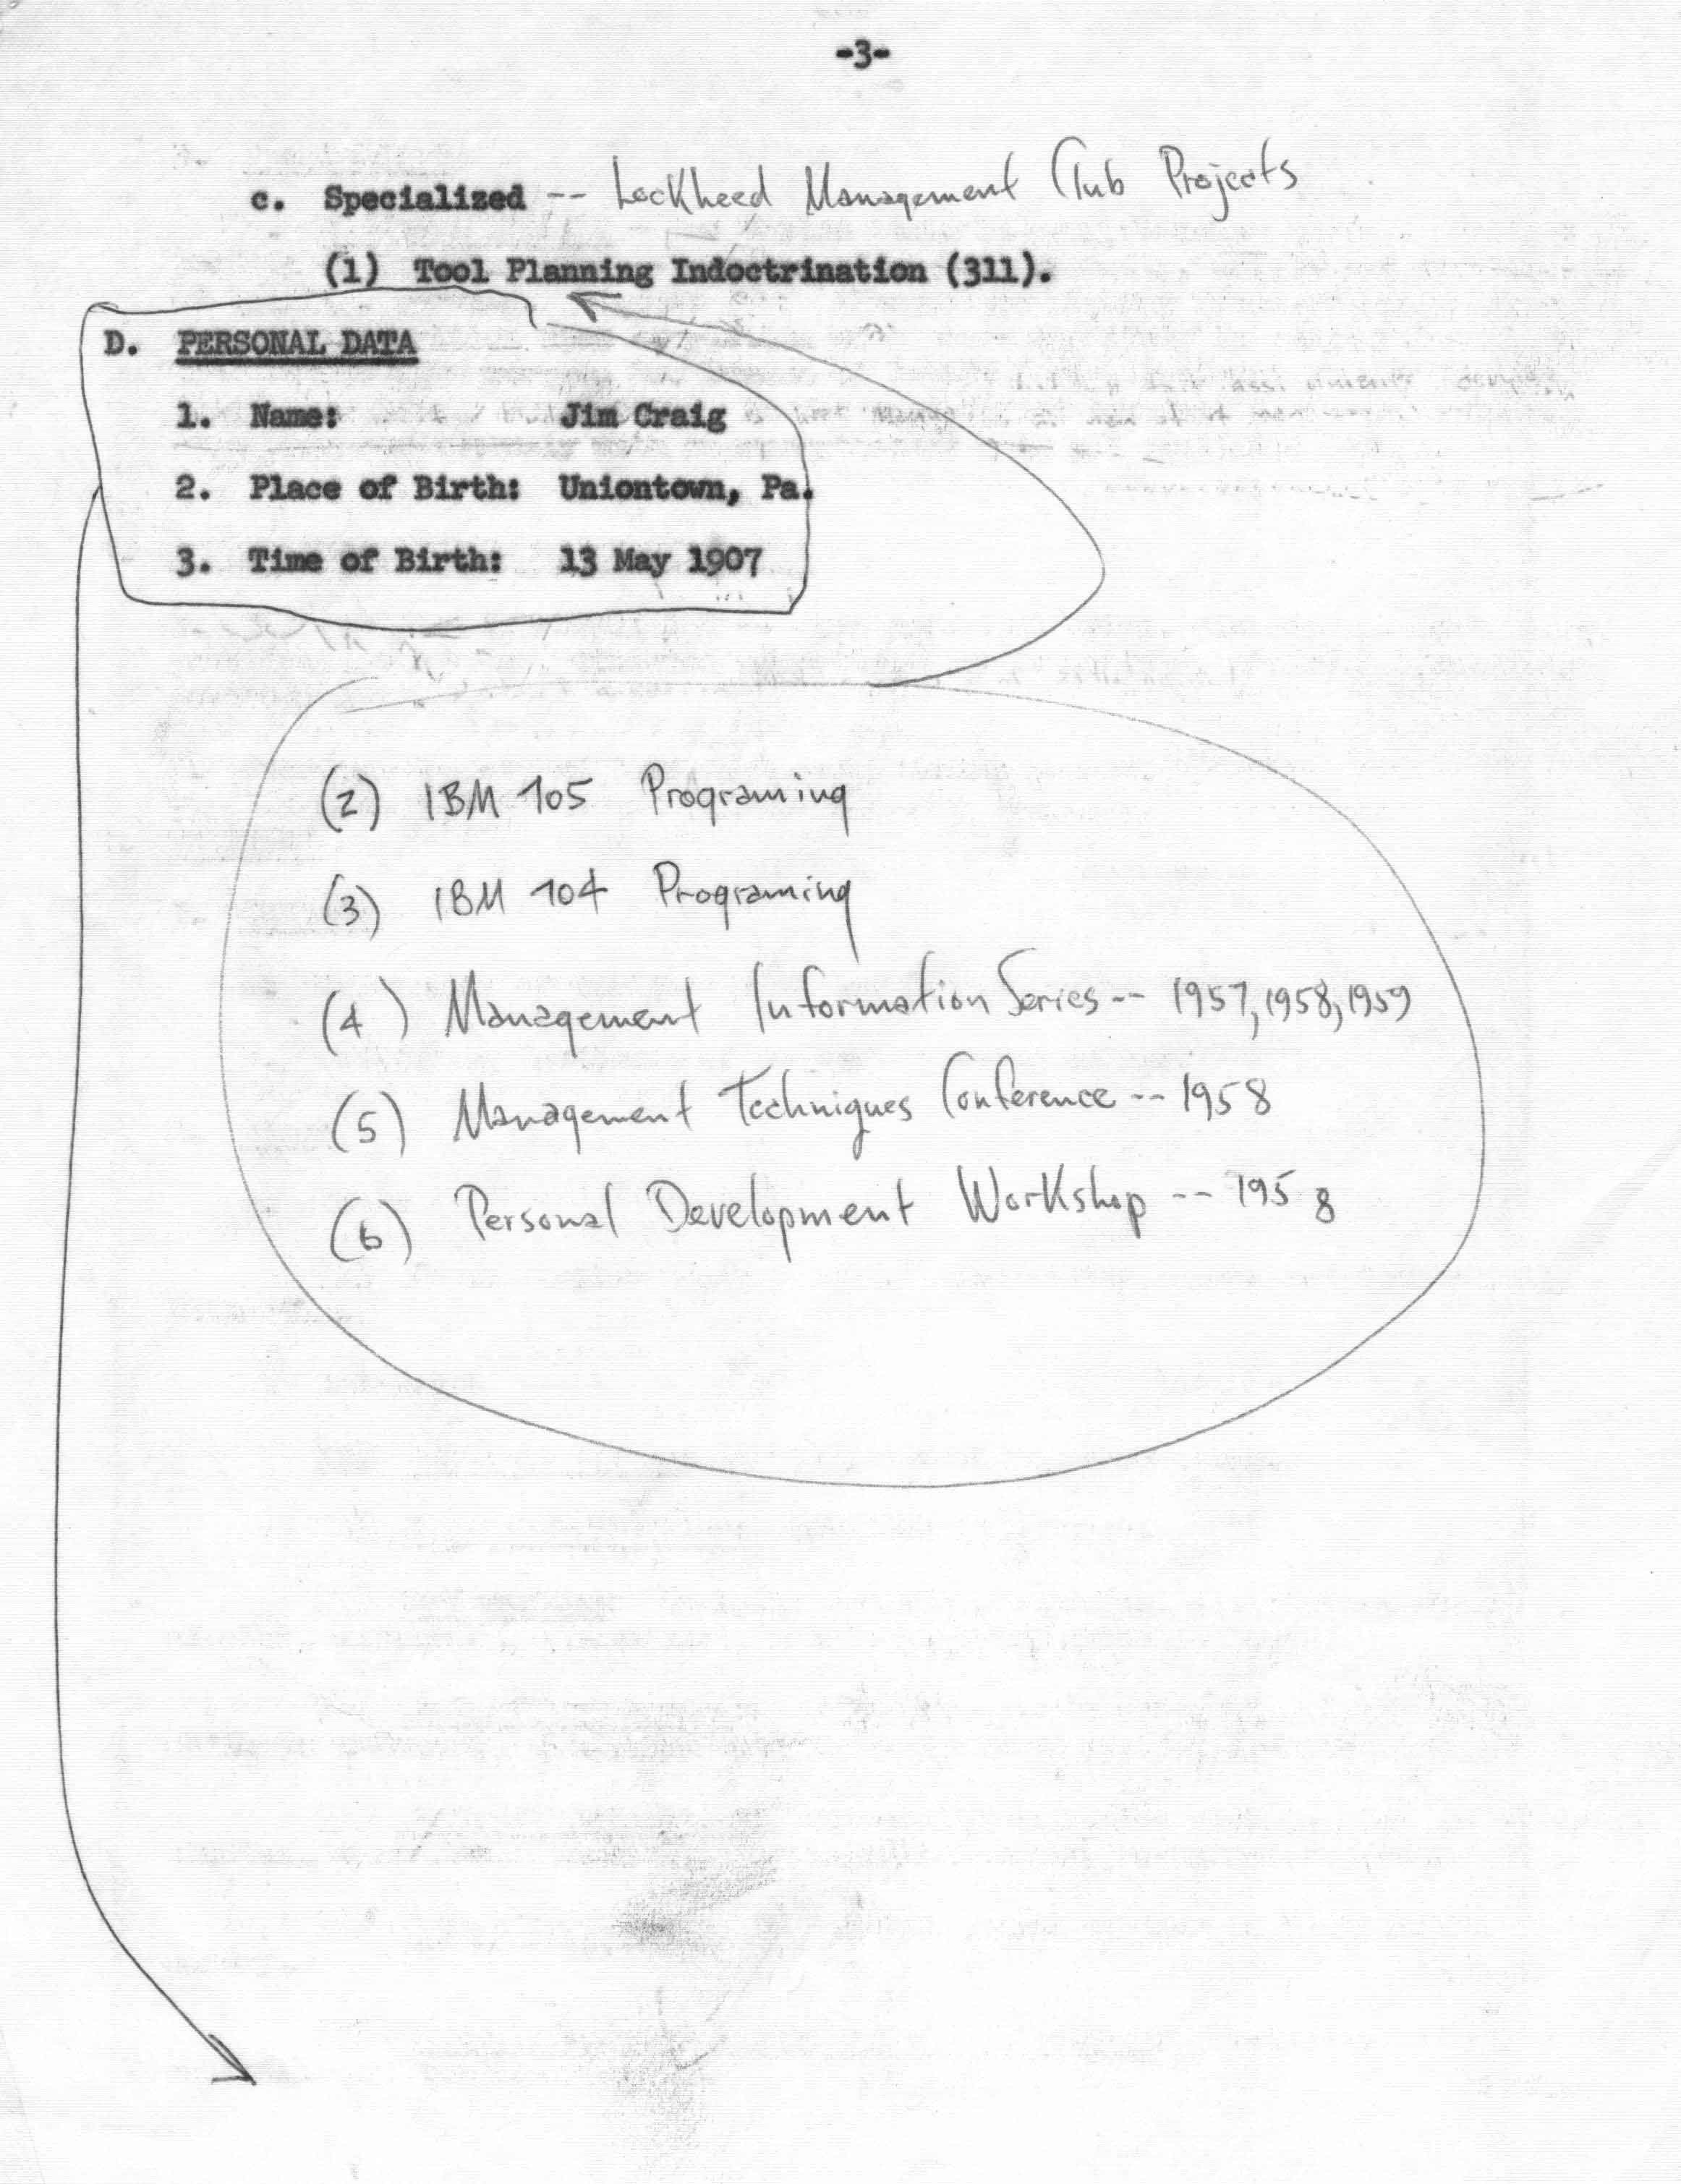 -3-
c. Specialized -- Lockheed Management Club Projects
(1) Tool Planning Indoctrination (311).
D. PERSONAL DATA
1. Name: Jim Craig
2. Place of Birth: Uniontown, Pa.
3. Time of Birth: 13 May 1907
(2) IBM 705 Programing
(3) IBM 704 Programing
(4) Management Information Series -- 1957, 1958, 1959
(5) Management Techniques Conference -- 1958
(6) Personal Development Workshop -- 1958